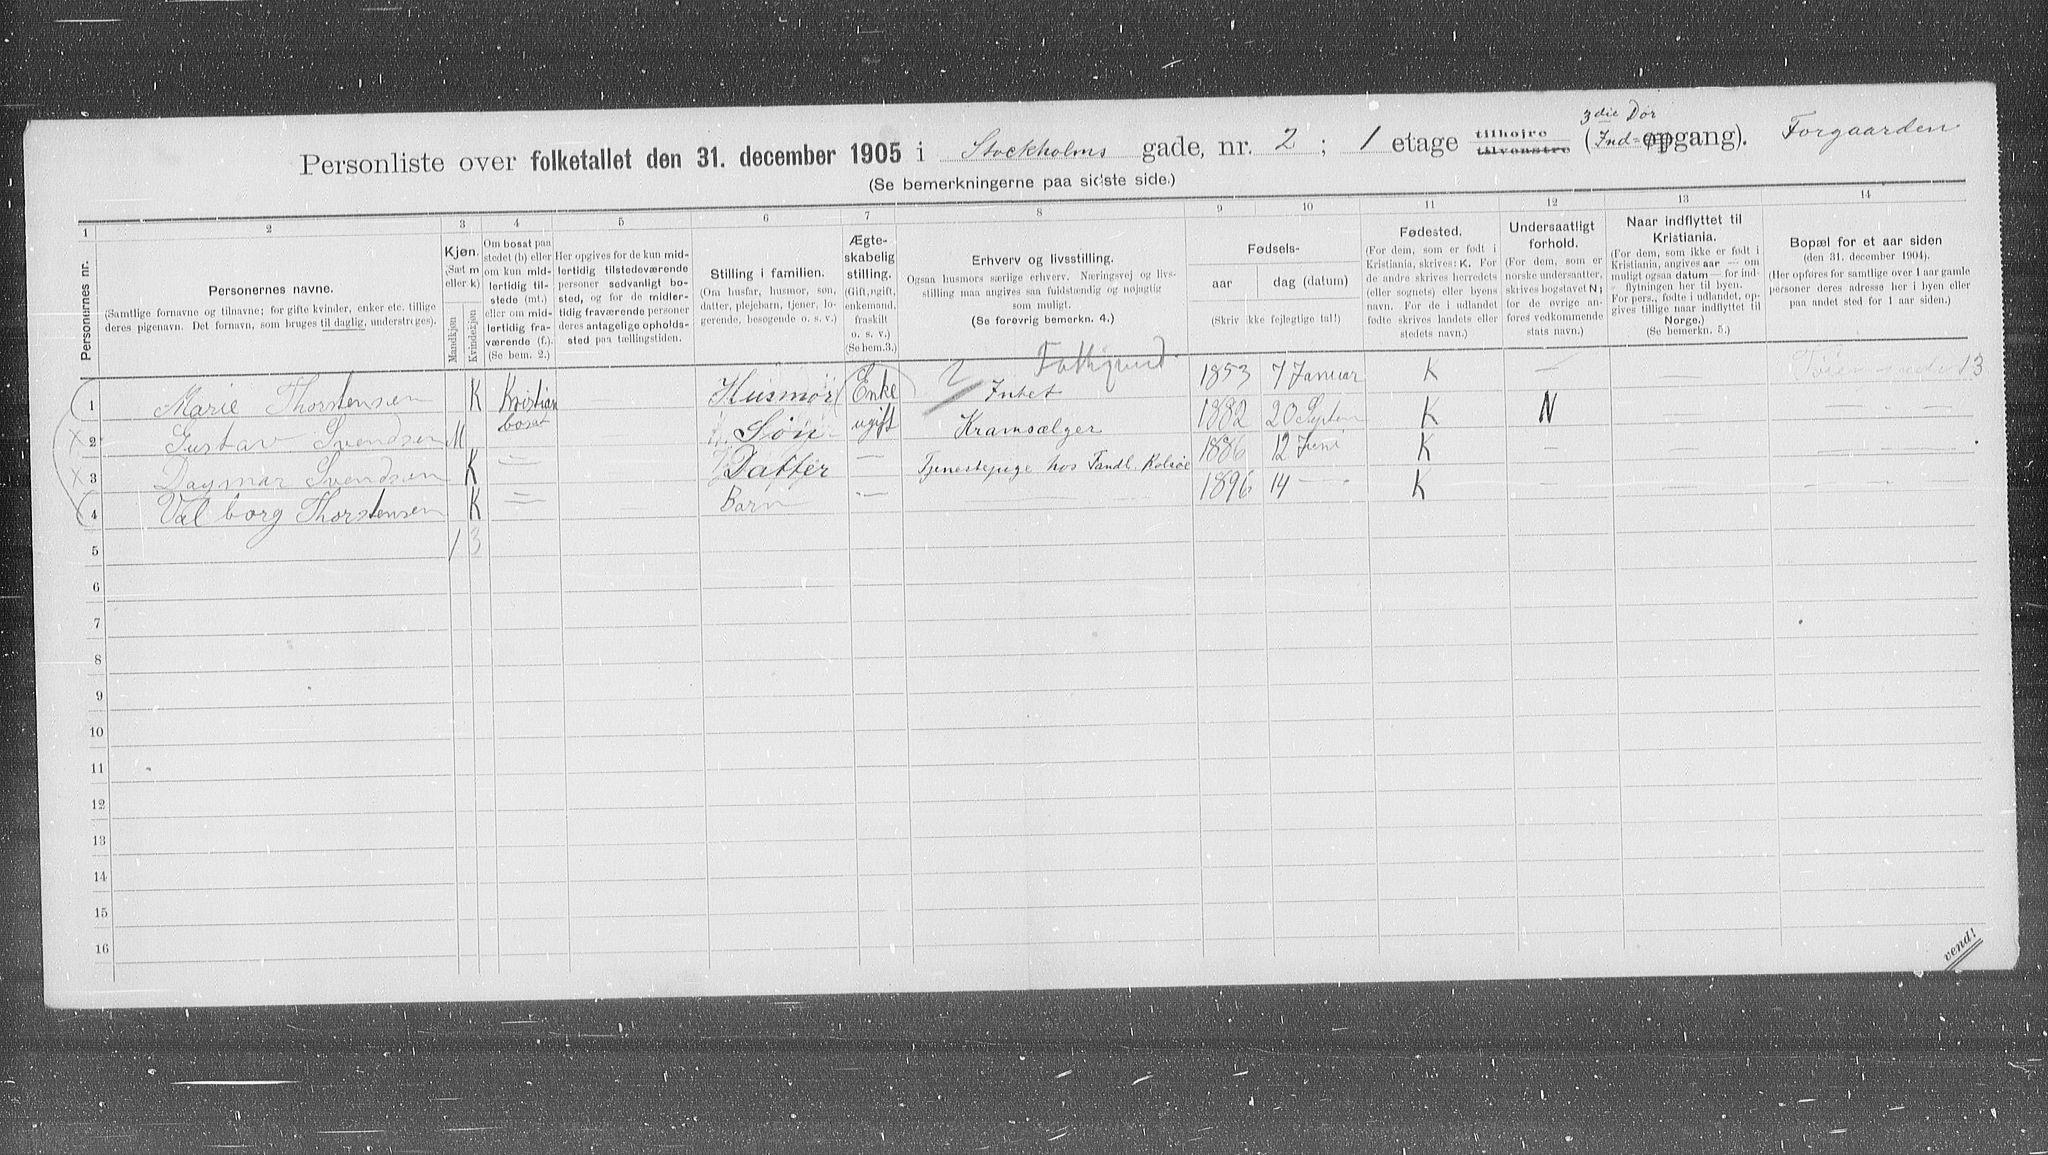 3die Dør
Personliste over folketallet den 31. december 1905 i Stockholms gade, nr. 2 ; 1 etage tilhøjre tilvenstre (Ind= opgang). Forgaarden
(Se bemerkningerne paa sidste side.)
1 2 3 4 5 6 7 8 9 10 11 12 13 14
Personernes nr.
Personernes navne.
(Samtlige fornavne og tilnavne; for gifte kvinder, enker etc. tillige
deres pigenavn. Det fornavn, som bruges til daglig, understreges).
Kjøn.
(Sæt m
eller k)
Mandkjøn
Kvindekjøn
Om bosat paa
stedet (b) eller
om kun mid-
lertidig til-
stede (mt.)
eller om mid-
lertidig fra-
værende (f.).
(Se bem. 2.)
Her opgives for de kun mid-
lertidig tilstedeværende
personer sedvanligt bo-
sted, og for de midler-
tidig fraværende personer
deres antagelige opholds-
sted paa tællingstiden.
Stilling i familien.
(Om husfar, husmor, søn,
datter, plejebarn, tjener, lo-
gerende, besøgende o. s. v.)
Ægte-
skabelig
stilling.
(Gift, ugift,
enkemand,
fraskilt
o. s. v.)
(Se bem. 3.)
Erhverv og livsstilling.
Ogsaa husmors særlige erhverv. Næringsvej og livs-
stilling maa angives saa fuldstændig og nøjagtig
som muligt.
(Se forøvrig bemerkn. 4.)
Fødsels-
aar
dag (datum)
(Skriv ikke fejlegtige tal!)
Fødested.
(For dem, som er født i
Kristiania, skrives: K. For
de andre skrives herredets
(eller sognets) eller byens
navn. For de i udlandet
fødte skrives landets eller
stedets navn.)
Undersaatligt
forhold.
(For dem, som er
norske undersaatter,
skrives bogstavet N;
for de øvrige an-
føres vedkommende
stats navn.)
Naar indflyttet til
Kristiania.
(For dem, som ikke er født i
Kristiania, angives aar — om
muligt ogsaa datum — for ind-
flytningen her til byen.
For pers., fødte i udlandet, op-
gives tillige naar indflyttet til
Norge.)
(Se bemerkn. 5.)
Bopæl for et aar siden
(den 31. december 1904).
(Her opføres for samtlige over 1 aar gamle
personer deres adresse her i byen eller
paa andet sted for 1 aar siden.)
1 Marie Thorstensen K Kristian Husmor Enke Intet 1853 7 Januar K — — 13
bosat
2 Gustav Svendsen M Søn ugift Kramsælger 1882 20 Septen K N — — — —
3 Dagmar Svendsen K — Datter — Tjenestepige hos Tandl. 1886 12 Juni K — — — — —
4 Valborg Thorstensen K — Barn — — 1896 14 — K — — — — —
5 1 3
6
7
8
9
10
11
12
13
14
15
16
vend!